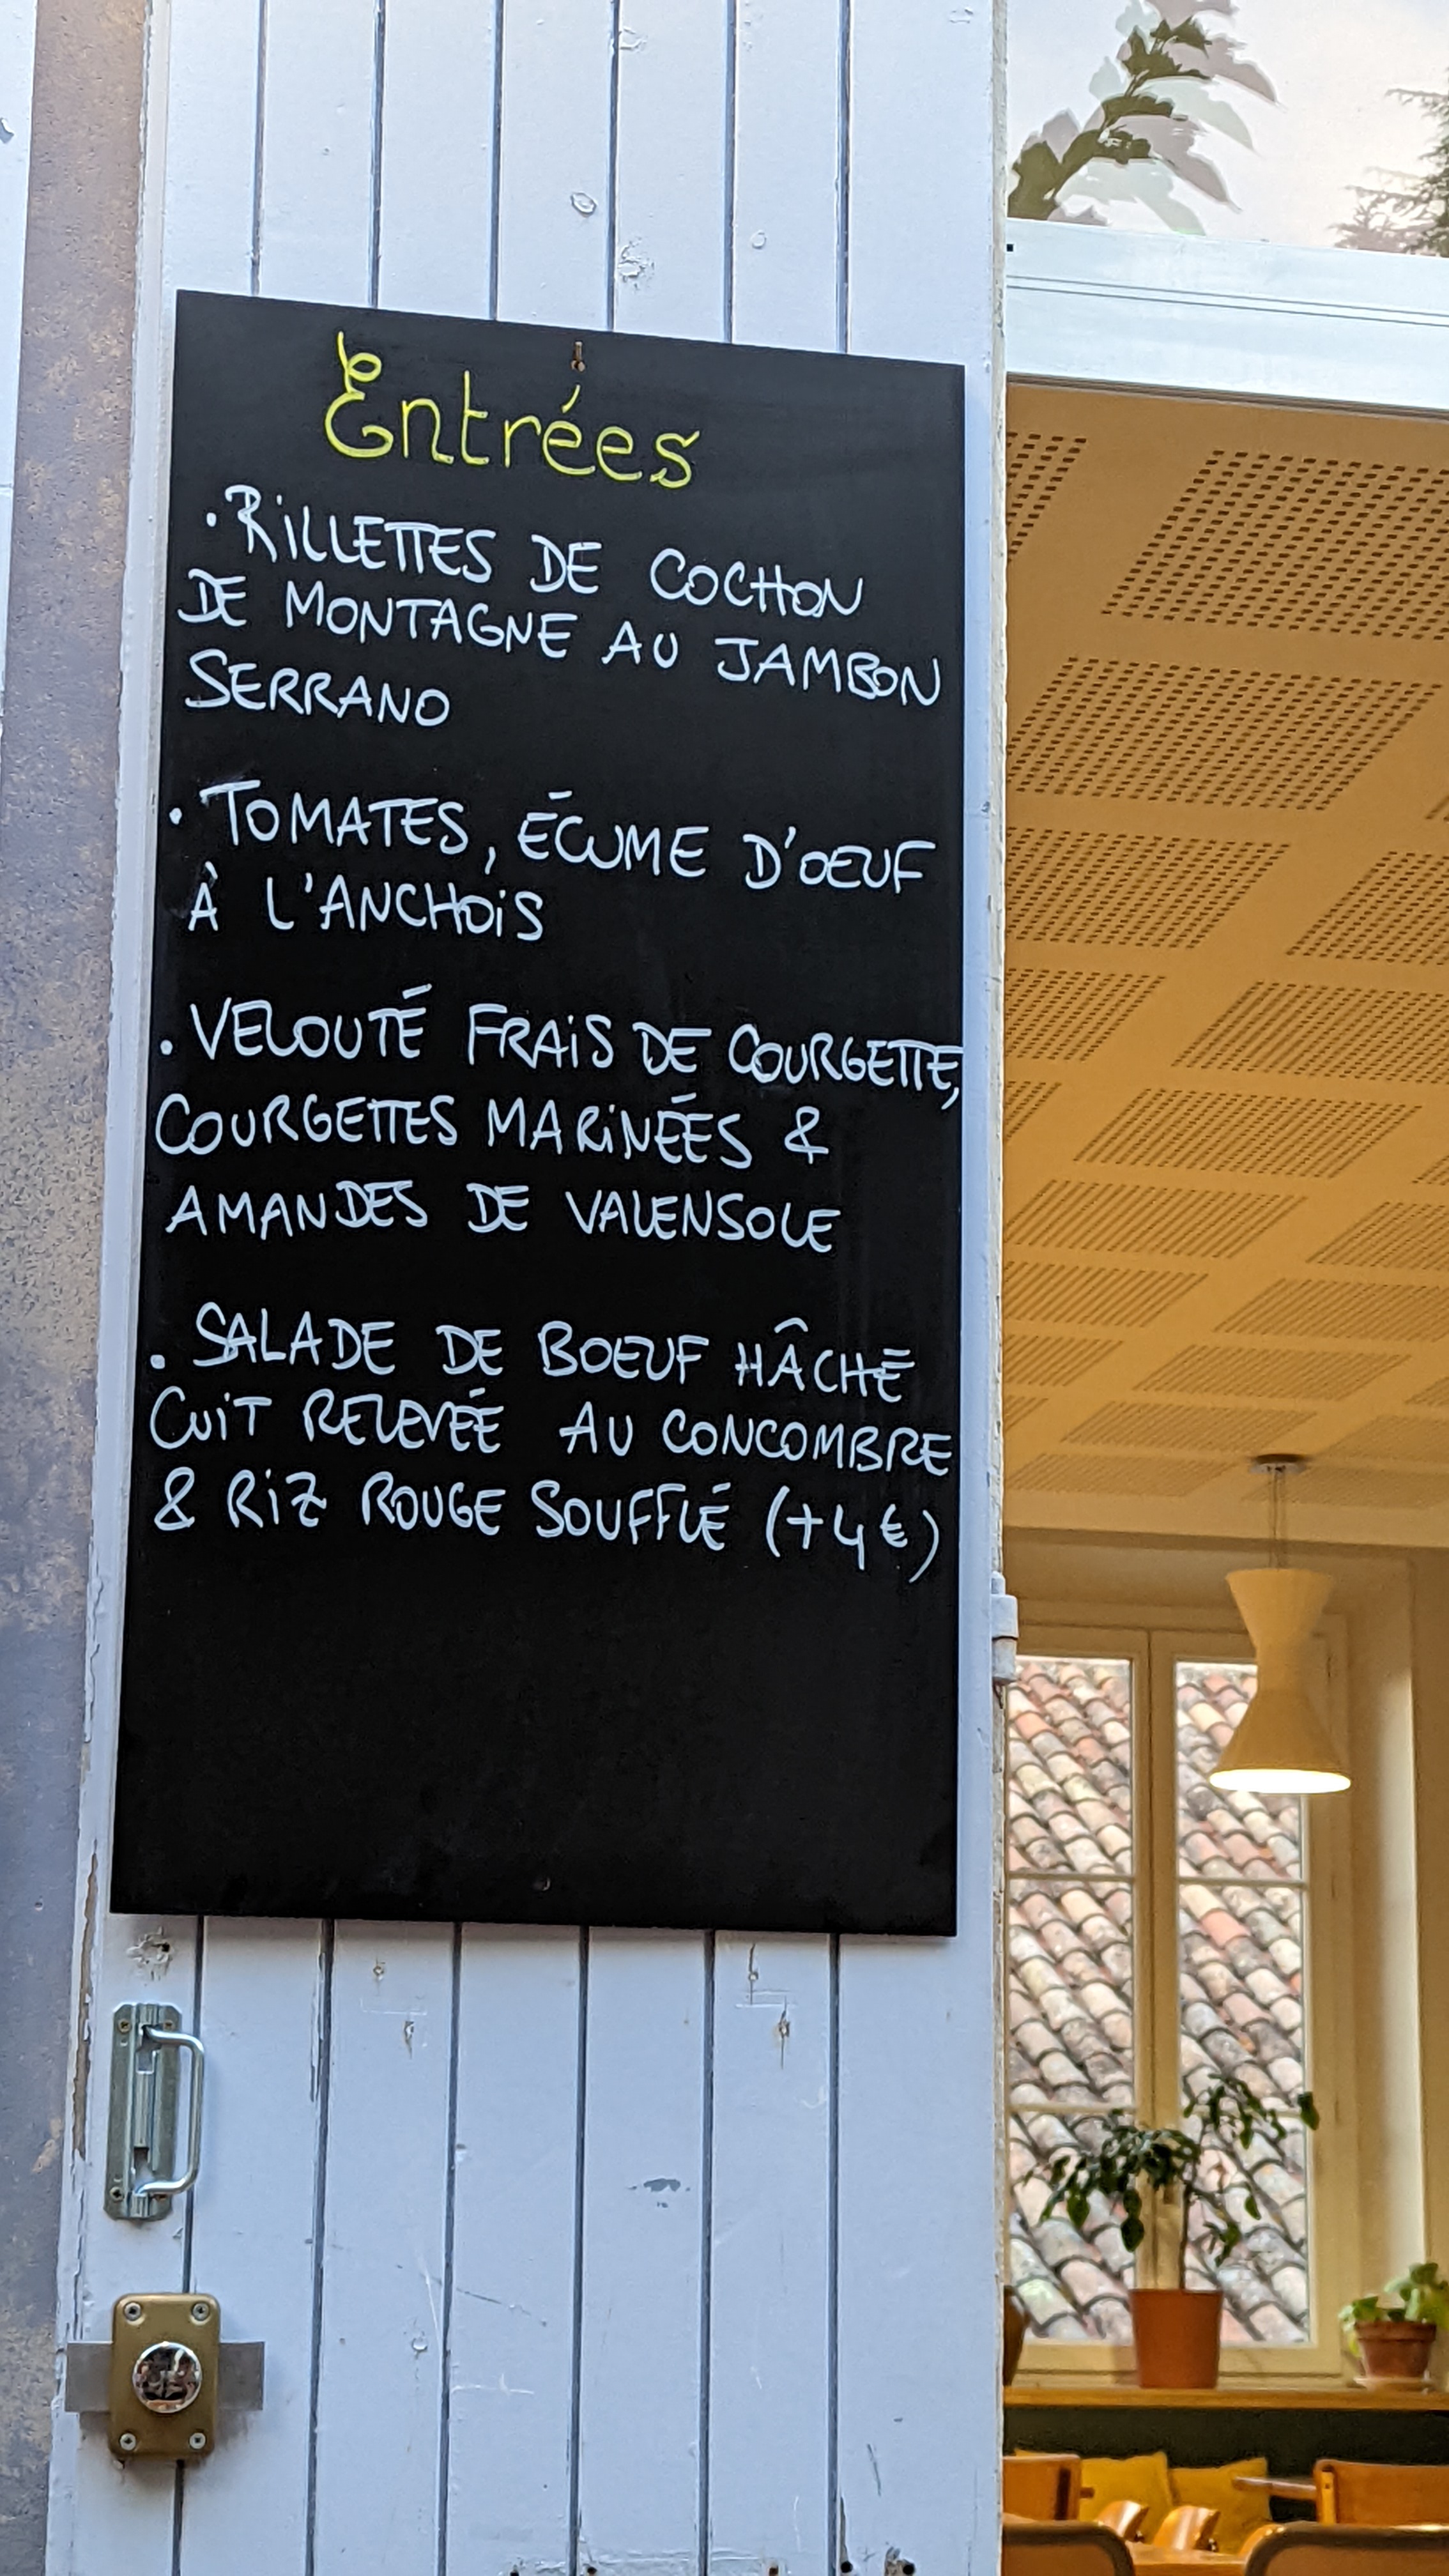 Entrées
· RILLETTES DE COCHON
DE MONTAGNE AU JAMBON
SERRANO
· TOMATES, ÉCUME D'OEUF
À L'ANCHOIS
. VELOUTÉ FRAIS DE COURGETTE,
COURGETTES MARINÉES &
AMANDES DE VALENSOLE
. SALADE DE BOEUF HÂCHÉ
CUIT RELEVÉE AU CONCOMBRE
& RIZ ROUGE SOUFFLÉ (+4€)